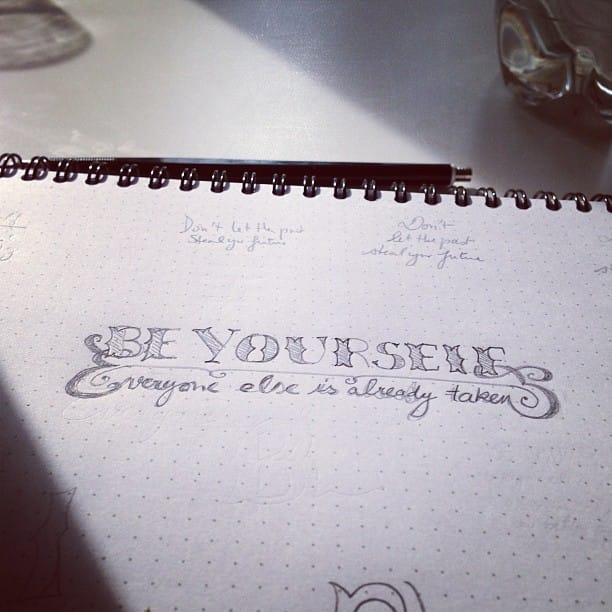 Don't let the past
Steal your future
Don't
let the past
steal your future
BE YOURSELF
Everyone else is already taken